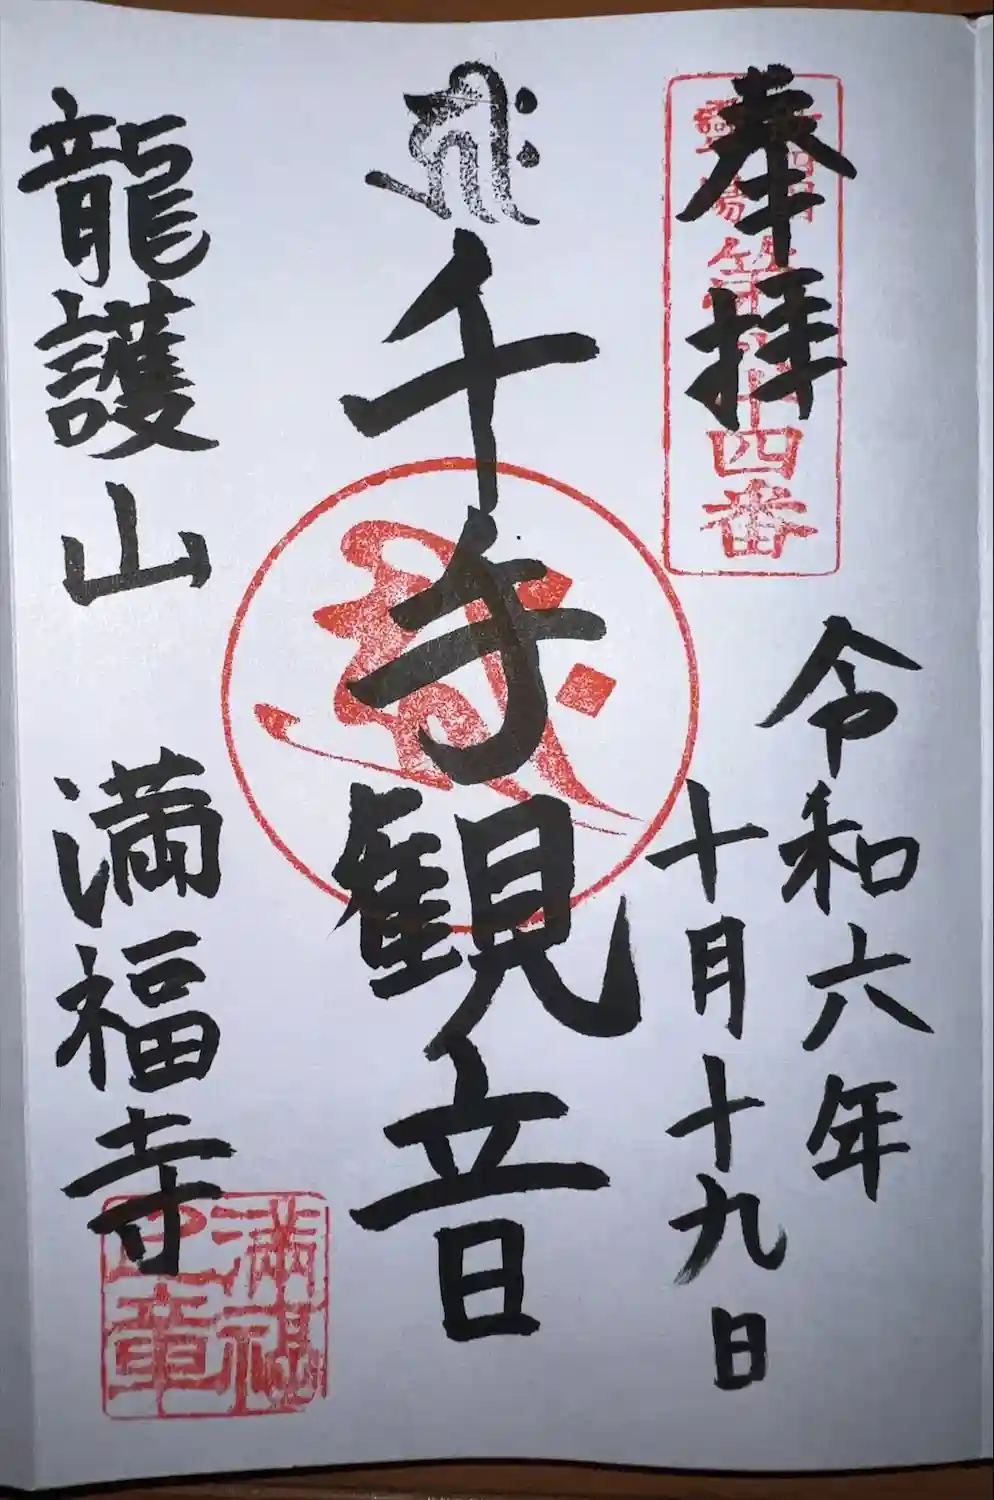 奉拝
四番
令和六年
十月十九日
千手観音
龍護山 満福寺
満福
印章